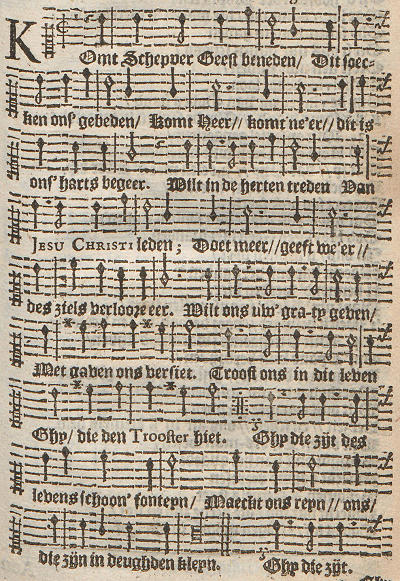 KOmt Schepper Geest beneden/ Dit soec-
ken ons' gebeden/ Komt Heer// komt ne'er// dit is
ons' harts begeer. Wilt in de herten treden Van
JESU CHRISTI leden; Doet meer//geeft we'er//
des ziels verlooze eer. Wilt ons uw' gra-ty geven/
Met gaven ons versiet. Troost ons in dit leven
Ghy/ die den Trooster hiet. Ghy die zijt des
levens schoon' fonteyn/ Maeckt ons reyn// ons/
die zijn in deughden kleyn. Ghy die zijt.